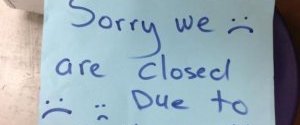 Sorry we :(
are closed
:( :( Due to